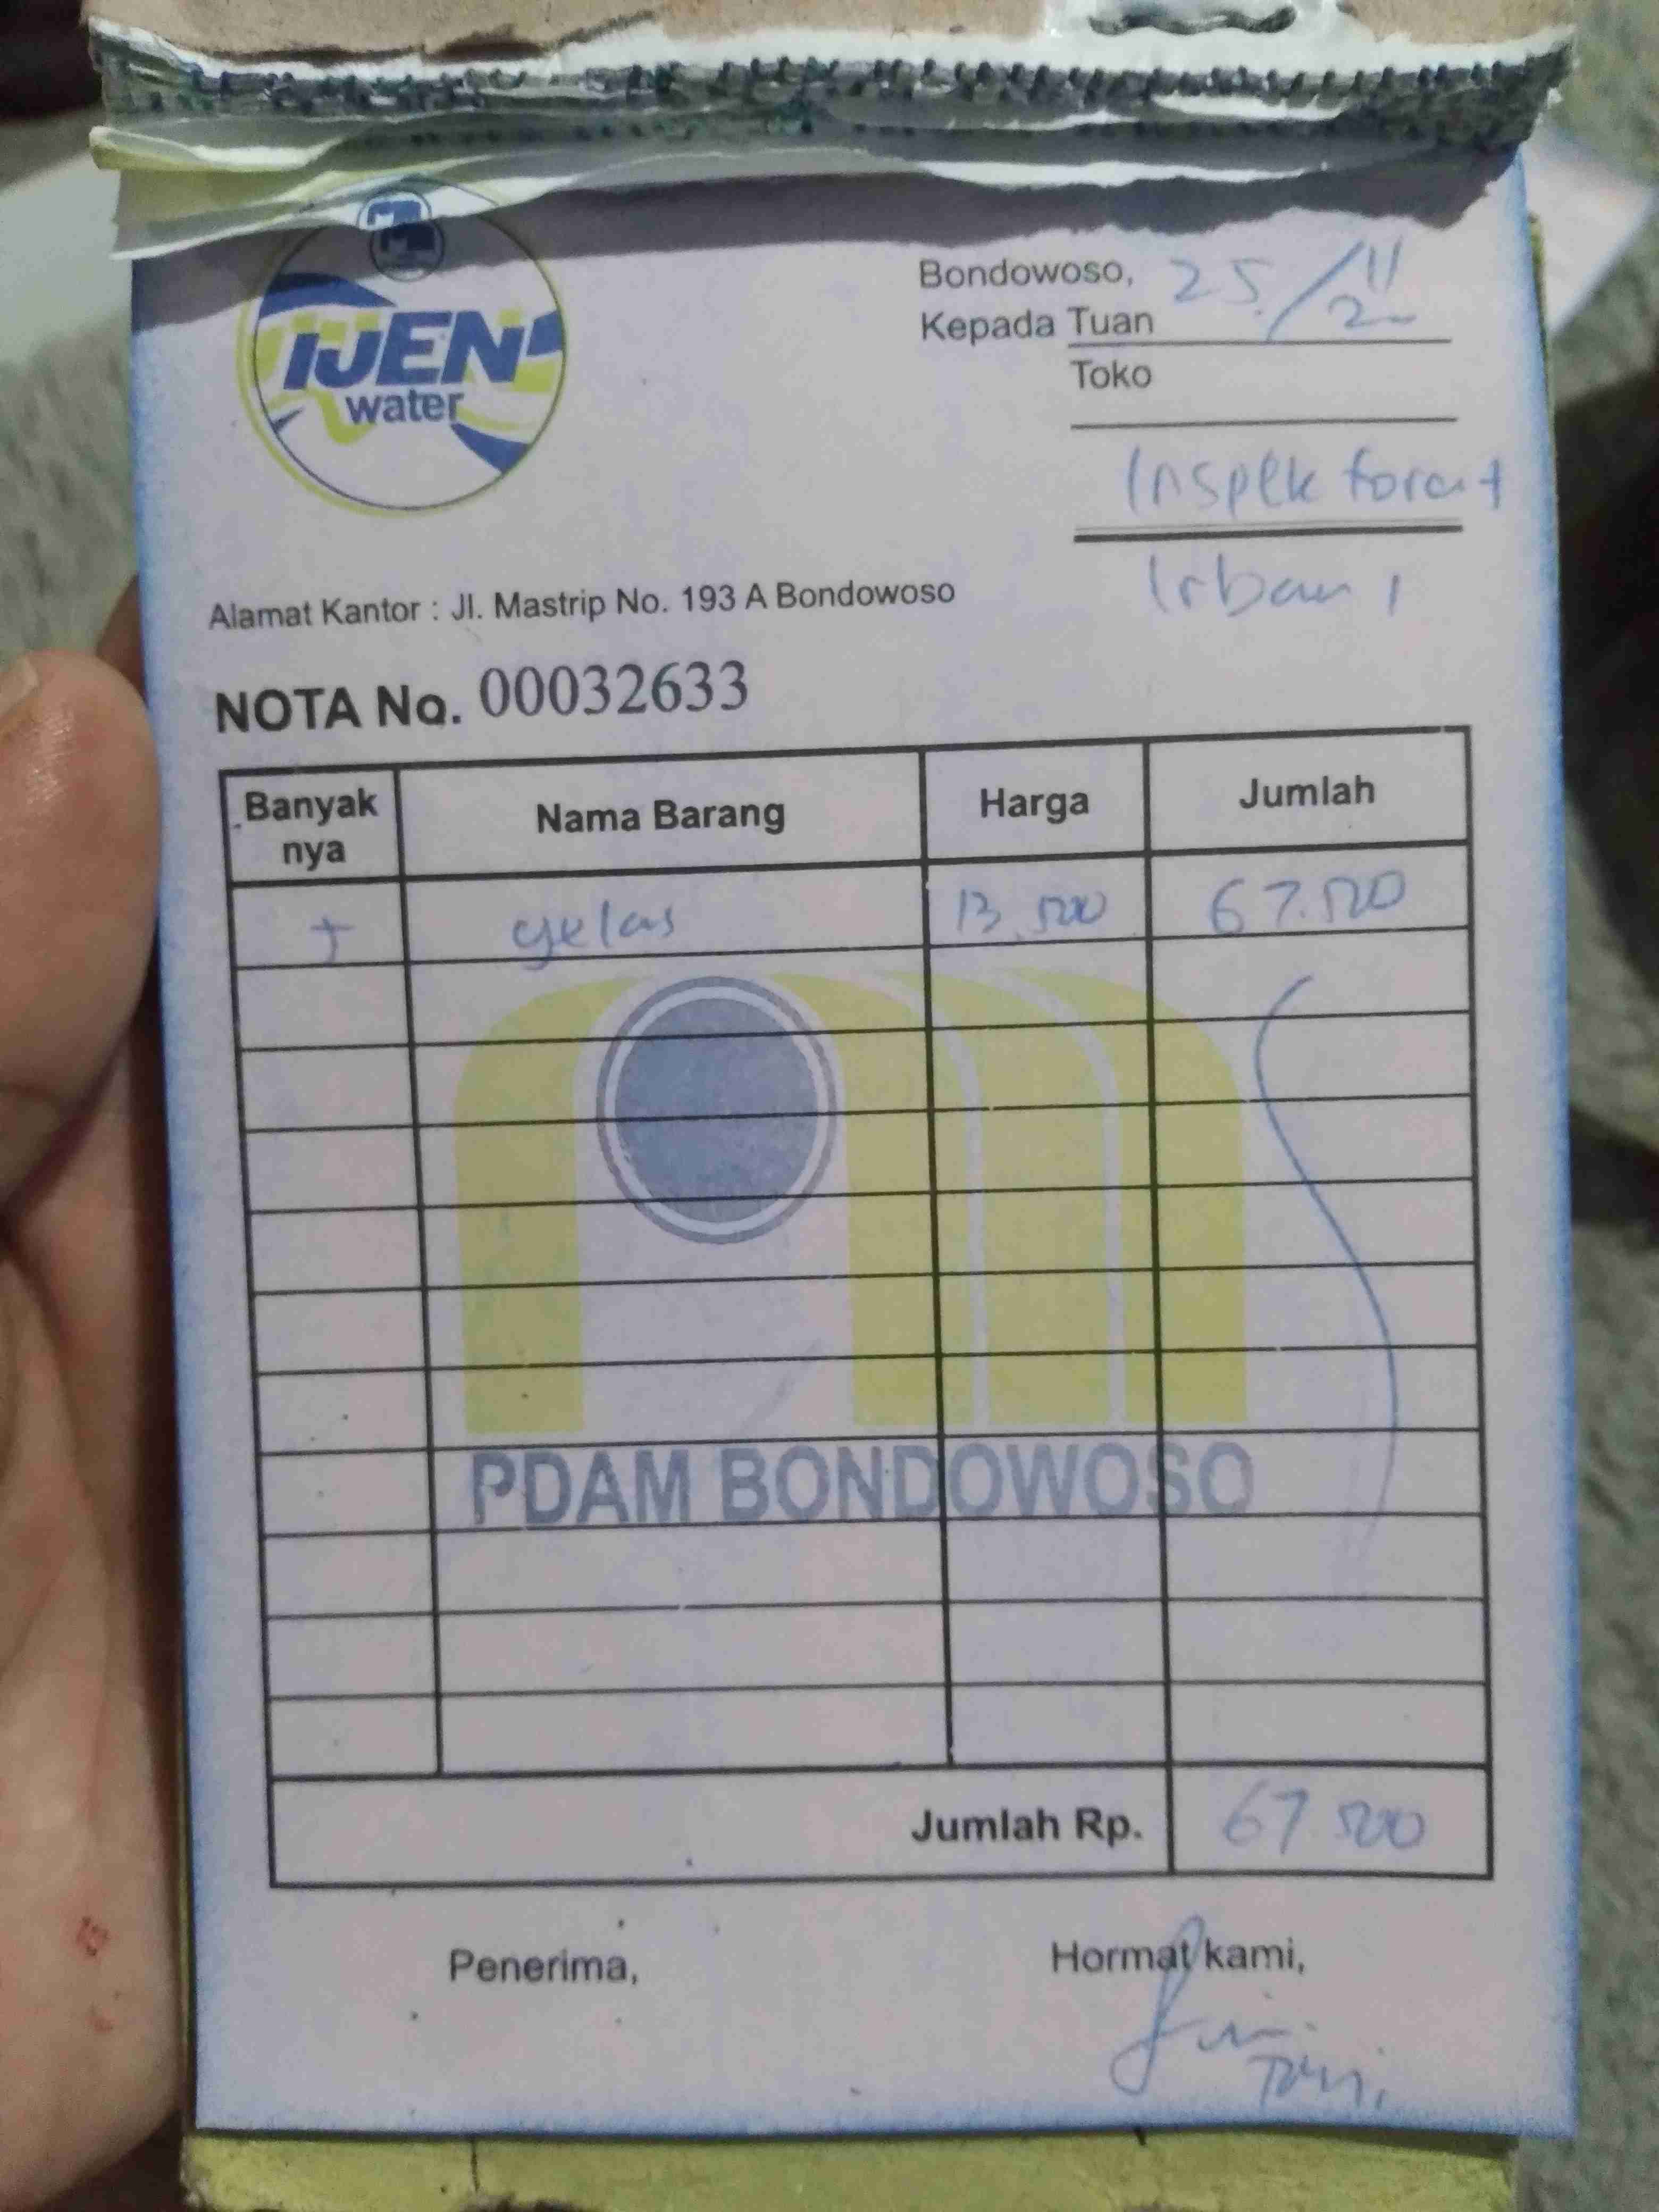 IJEN
water
Bondowoso, 25/11
2
Kepada Tuan
Toko
Inspektorat
Irban 1
Alamat Kantor : Jl. Mastrip No. 193 A Bondowoso
NOTA No. 00032633
Banyak nya Nama Barang Harga Jumlah
5 gelas 13.500 67.500
PDAM BONDOWOSO
Jumlah Rp. 67.500
Penerima, Hormat kami,